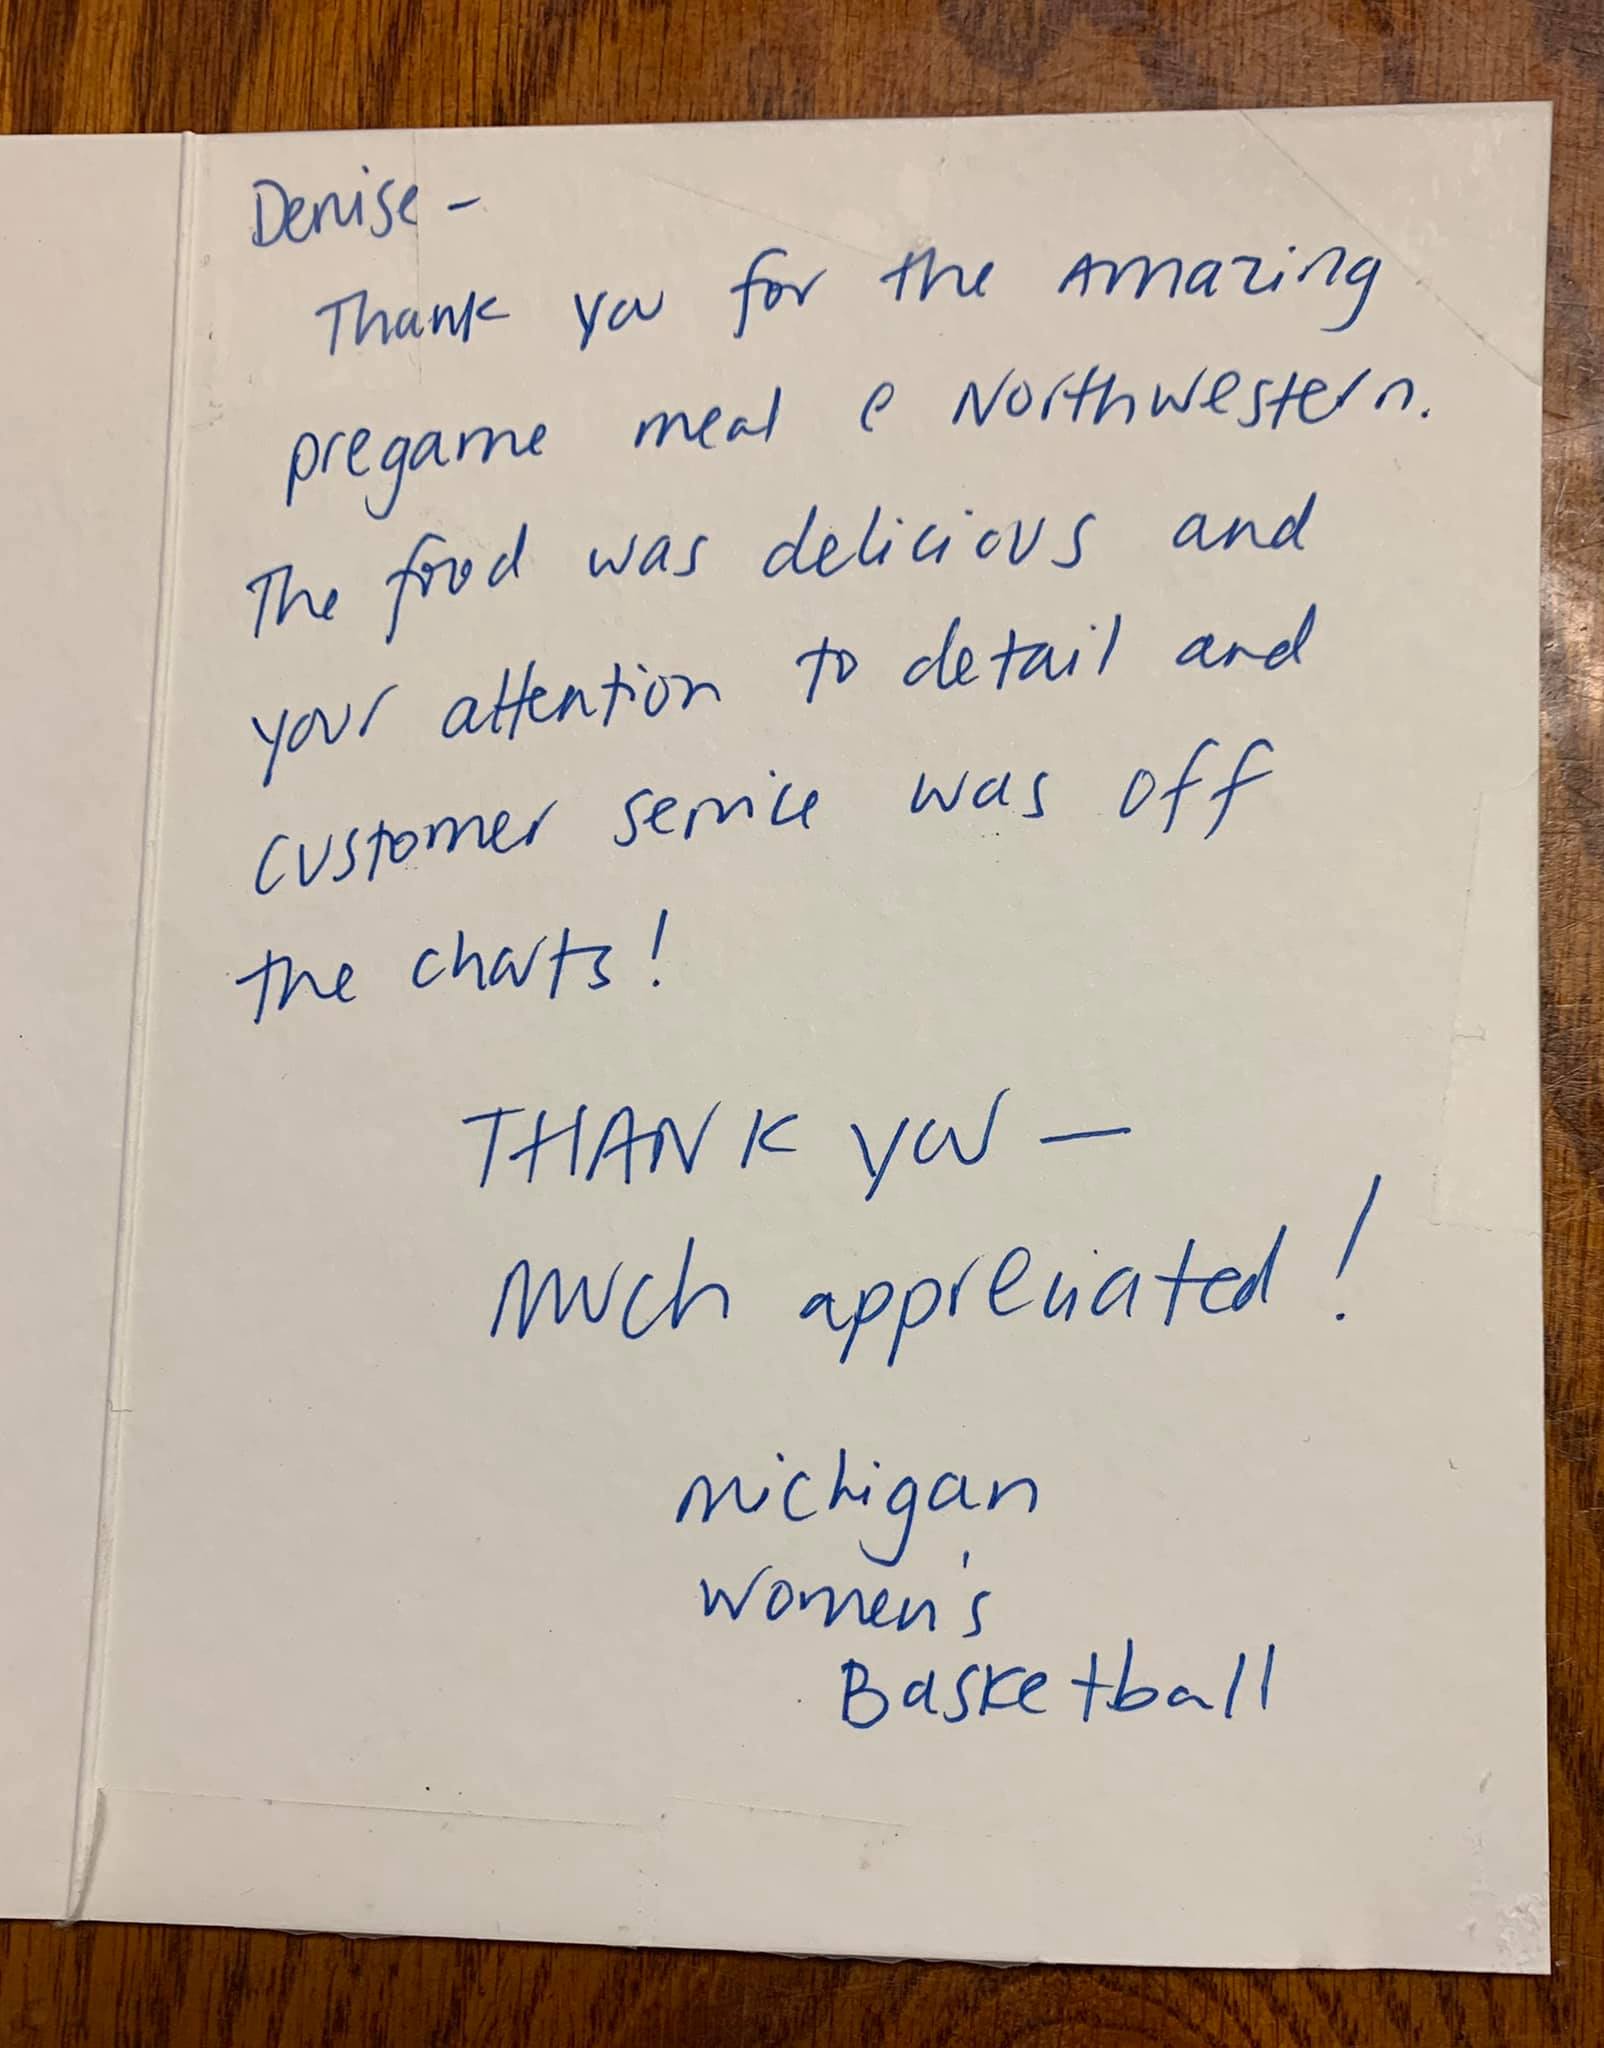 Denise -
Thank you for the Amazing
pregame meal @ Northwestern.
The food was delicious and
your attention to detail and
customer service was off
the charts!
THANK you —
much appreciated!
michigan
women's
Basketball